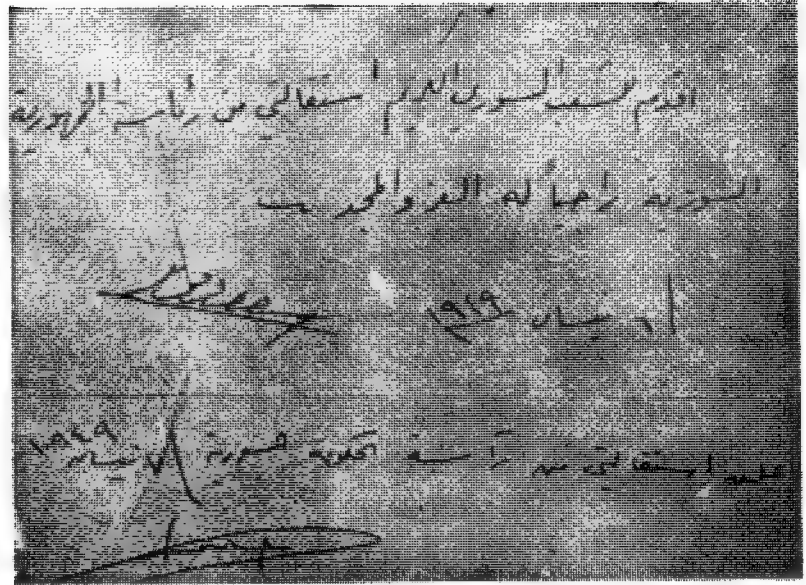 اقدم للشعب السوري الكريم استقالتي من رئاسة الجمهورية
السورية راجياً له العز والمجد
٦ نيسان ١٩٤٩
استقالتي من رآسة الحكومة السورية
نيسان ١٩٤٩